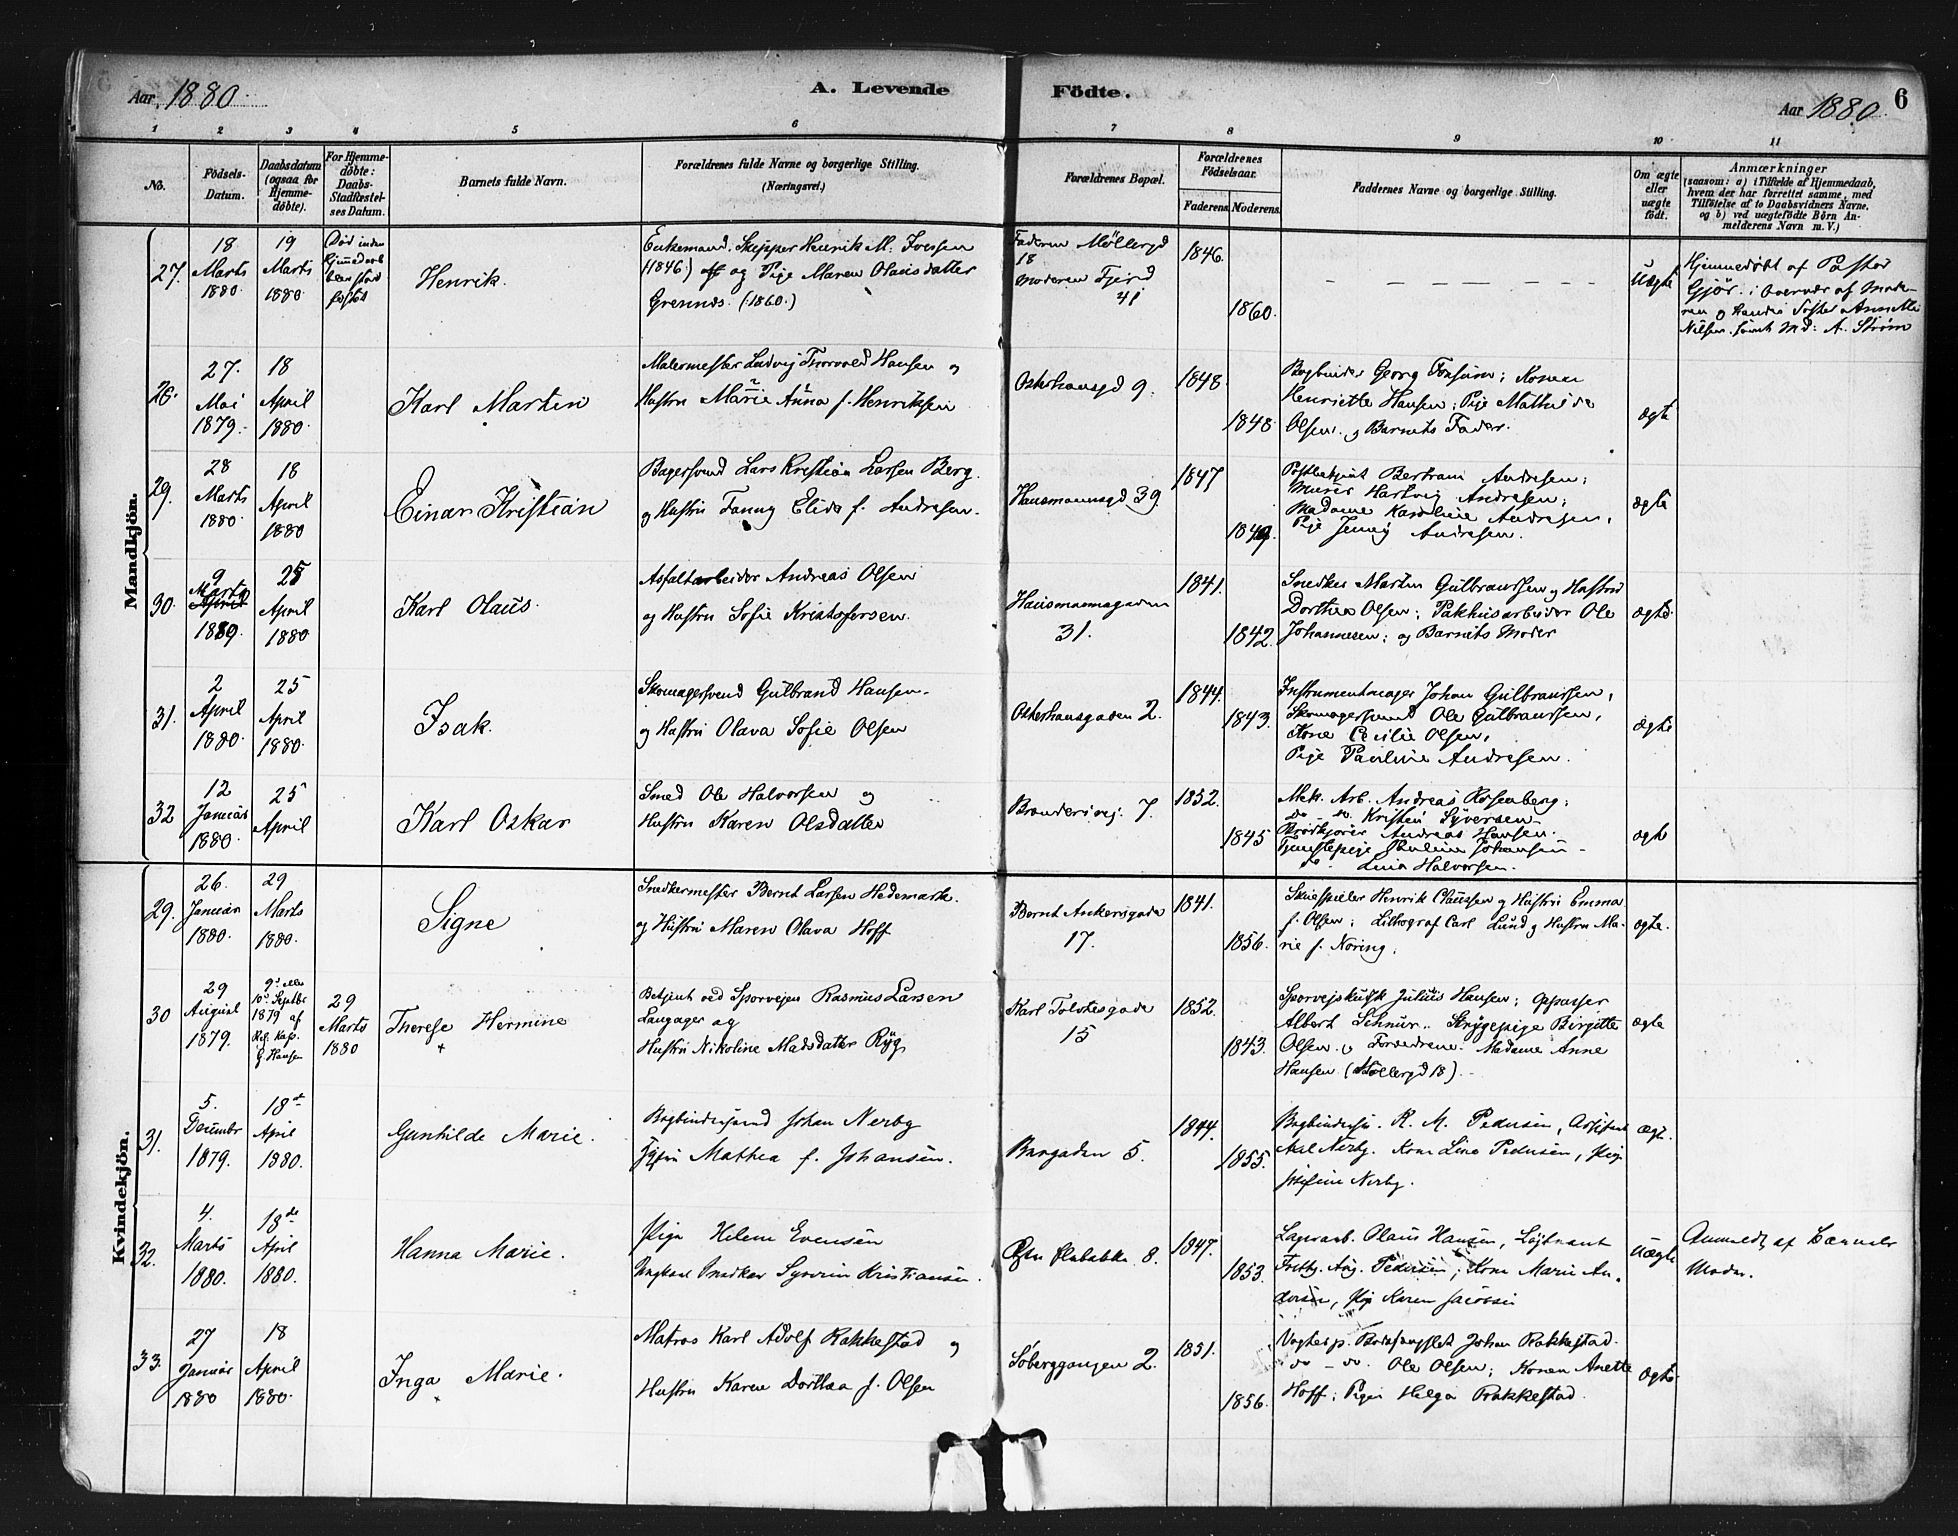 Aar 1880
A. Levende Födte.
Aar 1880.
6
1 2 3 4 5 6 7 8 9 10 11
No.
Födsels-
Datum.
Daabsdatum
(ogsaa for
Hjemme-
döbte).
For Hjemme-
döbte:
Daabs-
Stadfæstel-
ses Datum.
Barnets fulde Navn.
Forældrenes fulde Navne og borgerlige Stilling.
(Næringsvei.)
Forældrenes Bopæl.
Forældrenes
Födselsaar.
Faderens.
Moderens.
Faddernes Navne og borgerlige Stilling.
Om ægte
eller
uægte
födt.
Anmærkninger
(saasom: a) i Tilfælde af Hjemmedaab,
hvem der har forrettet samme, med
Tilföielse af to Daabsvidners Navne,
og b) ved uægtefödte Börn An-
melderens Navn m. V.)
Mandkjön.
27.
18
Marts
1880.
19
Marts
1880.
Död inden
Hjemmedaab
blev stad
fæstet
Henrik.
Enkemand. Skipper Henrik M. Iversen
(1846) og Pige Maren Olausdatter
Grennes. (1860.)
Faderen Möllergd
18
Moderen Fjerd
41
1846.
1860.
Uægte
Hjemmedöbt af Pastor
Gjör. i Overvær af Mode-
ren og Søster Annette
Nilsen samt Md: A. Ström
28.
27.
Mai
1879.
18
April
1880.
Karl Martin
Malermester Ludvig Thorvald Hansen og
Hustru Marie Anna f. Henriksen
Osterhausgd 9.
1848.
1848
Bogbinder Georg Fonsum; Konen
Henriette Hansen; Pige Mathilde
Olsen. og Barnets Fader.
ægte
29.
28
Marts
1880.
18
April
1880
Einar Kristian
Bagersvend Lars Kristian Larsen Berg.
og Hustru Fanny Elida f. Andresen.
Hausmannsgd 39.
1847
1849
Postbetjent Bertram Andresen;
Murer Hartvig Andresen;
Madame Karoline Andresen,
Pige Jenny Andresen.
ægte
30.
9
Marts
April
1880.
25
April
1880
Karl Olaus.
Asfaltarbeider Andreas Olsen
og Hustru Sofie Kristofersen.
Hausmannsgaden
31.
1841.
1842.
Snedker Martin Gulbranssen og Hustru
Dorthea Olsen; Pakhusarbeider Ole
Johannesen; og Barnets Moder
ægte
31.
2
April
1880.
25
April
1880.
Isak.
Skomagersvend Gulbrand Hansen.
og Hustru Olava Sofie Olsen
Osterhausgaden 2.
1844.
1843.
Instrumentmager Johan Gulbranssen,
Skomagersvend Ole Gulbranssen,
Kone Cecilie Olsen,
Pige Pauline Andresen.
ægte
32
12
Januar
1880.
25
April
Karl Oskar
Smed Ole Halvorsen og
Hustru Karen Olsdatter
7.
1852.
1845
Mek. Arb. Andreas Rosenberg;
do - do. Kristen Syversen
Brödkjörer Andreas Hansen.
Tjenestepige Pauline Johansen
do - Lina Halvorsen.
ægte
Kvindekjön.
29.
26.
Januar
1880.
29
Marts
1880.
Signe
Snedkermester Bernt Larsen Hedemark.
og Hustru Maren Olava Hoff
Bernt Ankersgade
17.
1841.
1856.
Skuespiller Henrik Claussen og Hustru Emma
f. Olsen; Lithograf Carl Lund og Hustru Ma-
rie f. Noring.
ægte.
30
29
August
1879.
9de eller
10de Septbr
1879 af
Kap.
G. Hansen
29
Marts
1880
Therese Hermine
Betjent ved Sporvejen Rasmus Larsen
Langager og
Hustru Nikoline Madsdatter Ryg
Karl Tolvtesgade
15
1852.
1843.
Sporvejskusk Julius Hansen; Opparser
Albert Schnur.. Strygepige Birgitte
Olsen. Madame Anne
Hansen (Möllergd 18).
ægte
31.
5.
Decembr
1879.
18de
April
1880.
Gunhilde Marie.
Bogbindersvend Johan Nerby
Mathea f. Johansen.
5.
1844.
1855.
Bogbindersv. R. M. Pedersen,
Axel Nerby. Kone Line Pedersen, Pige
Josefine Nerby.
ægte.
32.
4.
Marts
1880.
18de
April
1880.
Hanna Marie.
Pige Helene Evensen
Ungkarl Snedker Syverin Kristiansen.
8.
1847.
1853.
Lagerarb. Olaus Hansen, Löjtnant
Aug. Pedersen; Kone Marie An-
dersen, Pige Karen Jacobsen
uægte
Anmeldt af Barnets
Moder.
33.
27
Januar
1880
18
April
1880.
Inga Marie.
Matros Karl Adolf Rakkestad og
Hustru Karen Dorthea f. Olsen
Söberggangen 2.
1851.
1856.
Johan Rakkestad.
do - do. Ole Olsen; Konen Anette
Hoff; Pigen Helga Rakkestad.
ægte.